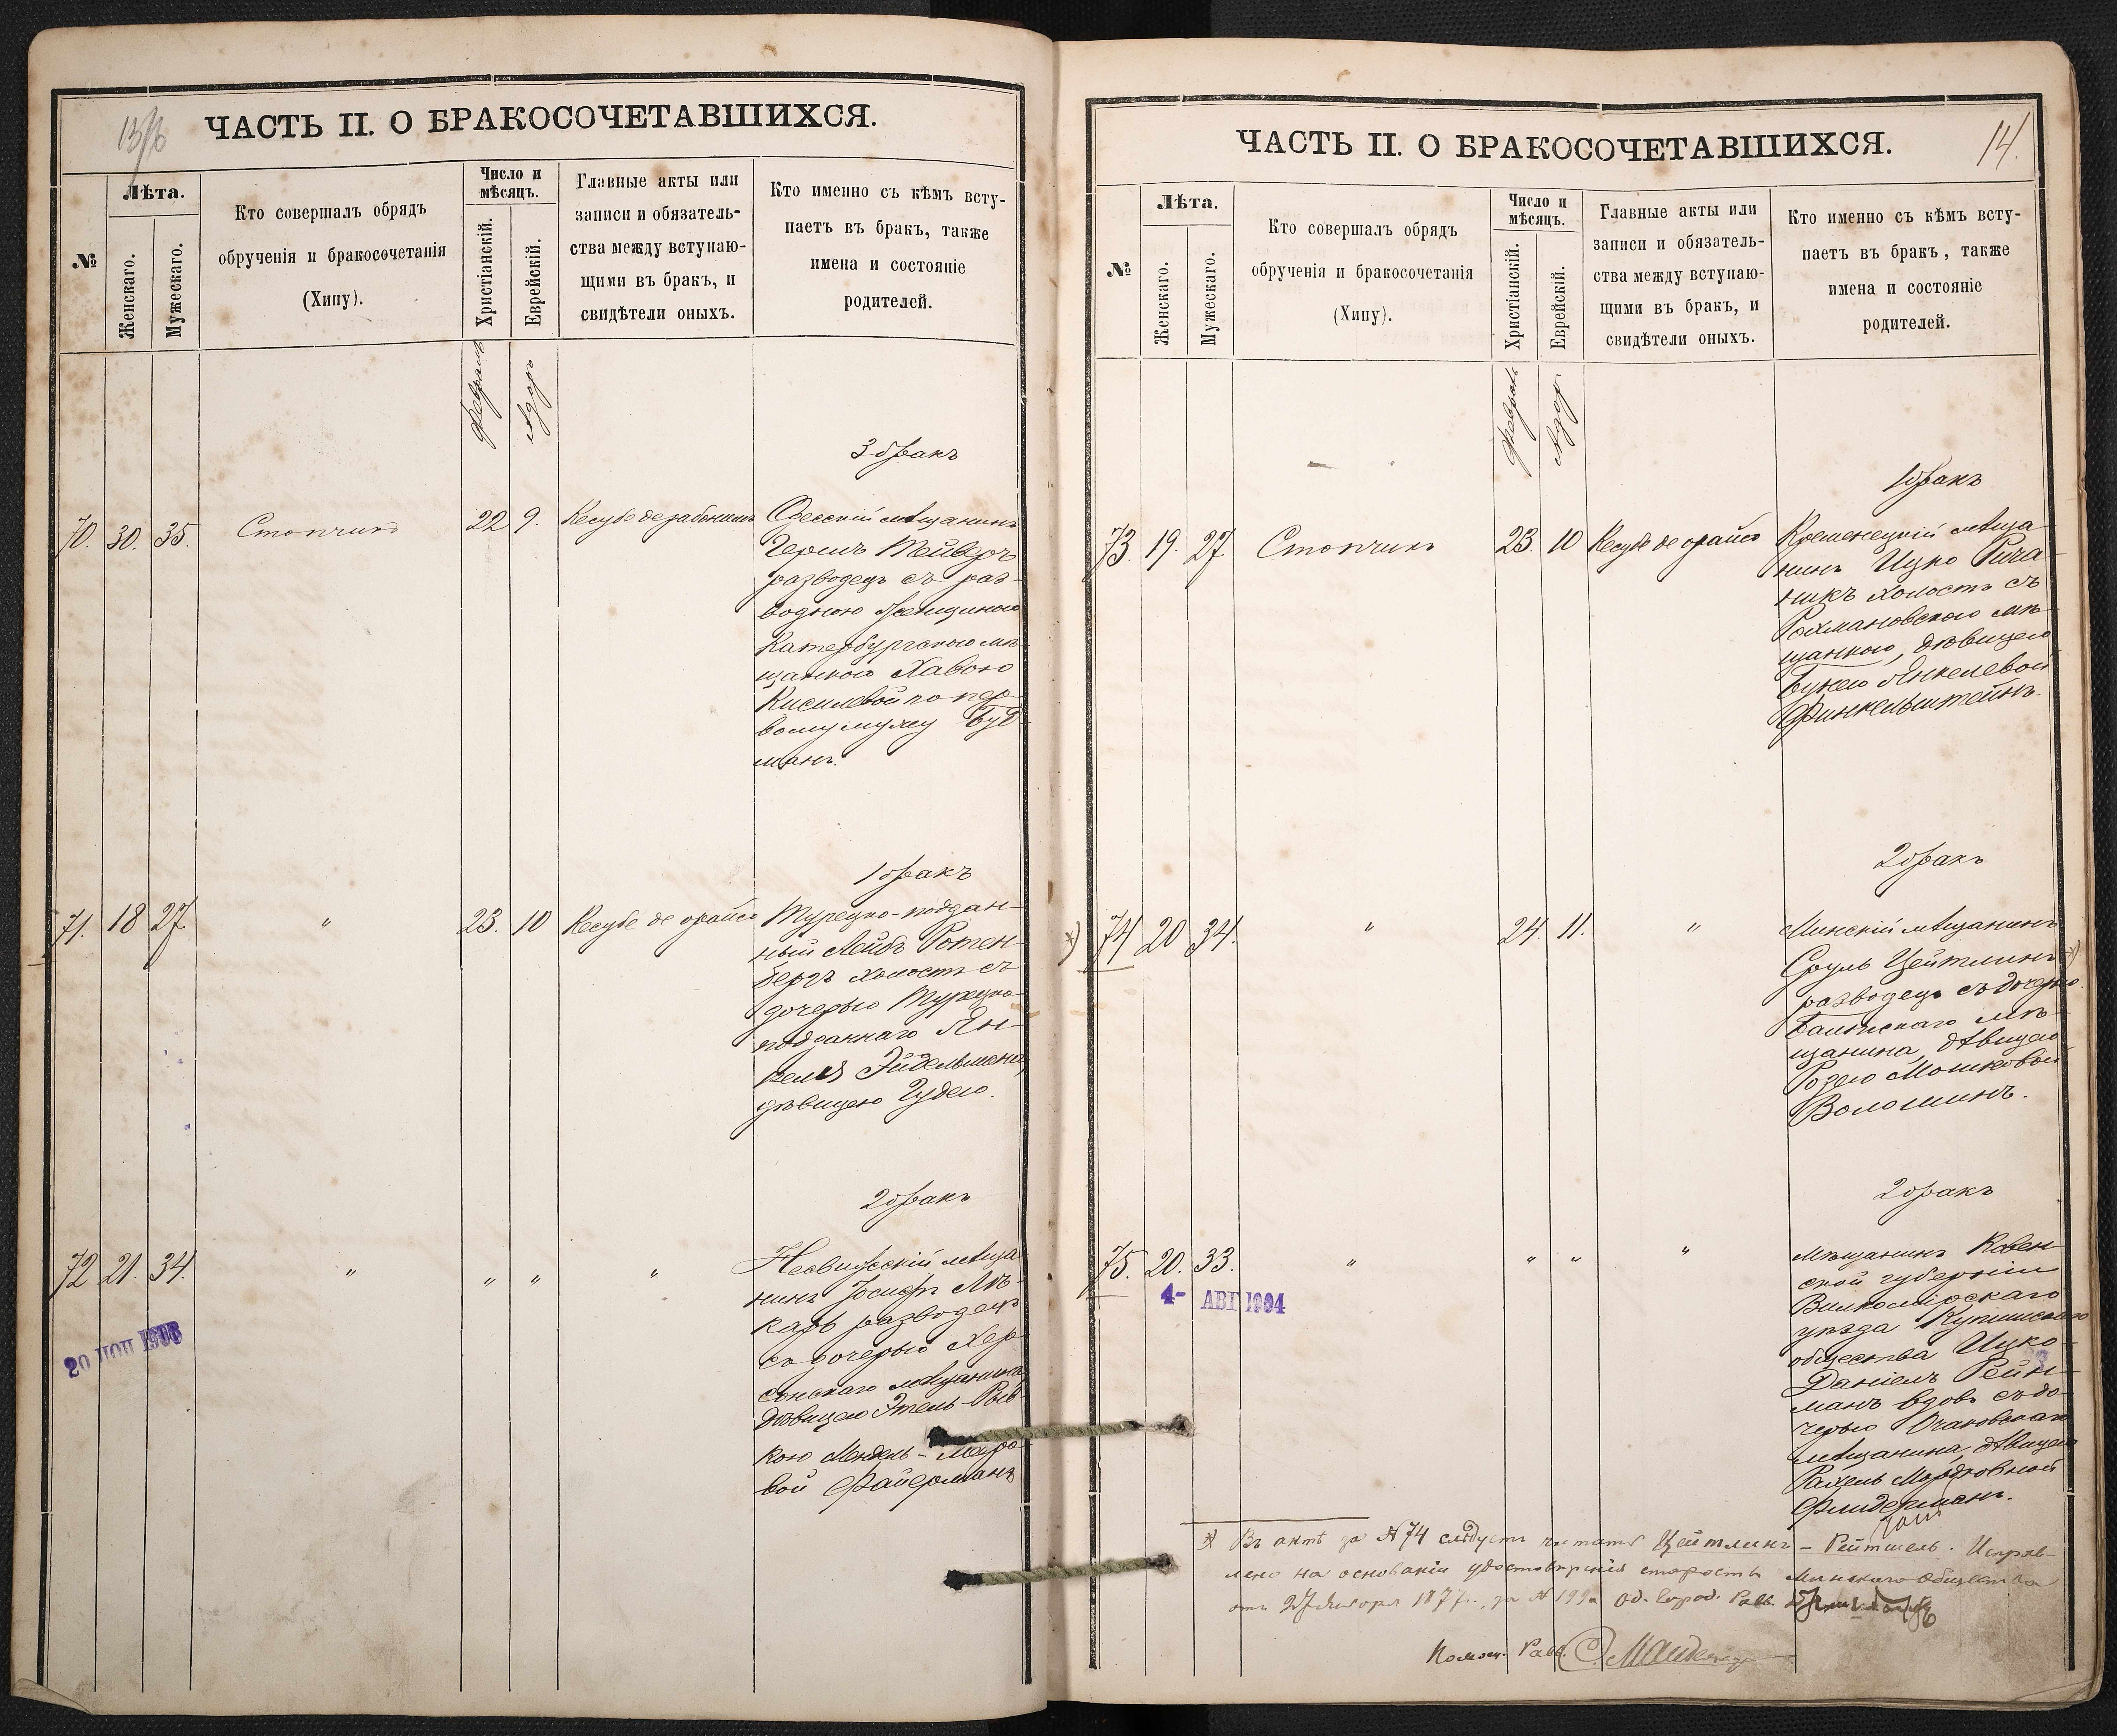 13/16
ЧАСТЬ II. О БРАКОСОЧЕТАВШИХСЯ.
№
Лѣта.
Женскаго.
Мужескаго.
Кто совершалъ обрядъ
обрученія и бракосочетанія
(Хипу).
Число и
мѣсяцъ.
Христіанскій.
Еврейскій.
Главные акты или
записи и обязатель-
ства между вступаю-
щими въ бракъ, и
свидѣтели оныхъ.
Кто именно съ кѣмъ всту-
паетъ въ бракъ, также
имена и состояніе
родителей.
Февраль
Адоръ
3 бракъ
70. 30. 35. Стопчикъ 22 9. Кесубе дерабононъ Одесскій мѣщанинъ
Гершъ
разводецъ съ раз-
водною женщиною
Катербургскою мѣ-
щанкою Хавою
Кисилевой по пер-
вому мужу Буд
манъ.
1 бракъ
71. 18 27 " 23. 10 Кесубе де орайсо Турецко-поддан-
ный Лейбъ Ротен-
бергъ холостъ съ
дочерью Турецко-
подданнаго Ян-
келя Эйдельмана,
дѣвицею Гудею.
2 бракъ
72 21. 34. " " " " Несвижскій мѣща
нинъ Іосифъ Лѣ-
карь разводецъ
съ дочерью Хер-
сонскаго мѣщанина,
дѣвицею Этель-Рыв
кою Мендель-Мееро
вой Файерманъ
20 ИЮН 1906
14.
ЧАСТЬ II. О БРАКОСОЧЕТАВШИХСЯ.
№
Лѣта.
Женскаго.
Мужескаго.
Кто совершалъ обрядъ
обрученія и бракосочетанія
(Хипу).
Число и
мѣсяцъ.
Христіанскій.
Еврейскій.
Главные акты или
записи и обязатель-
ства между вступаю-
щими въ бракъ, и
свидѣтели оныхъ.
Кто именно съ кѣмъ всту-
паетъ въ бракъ, также
имена и состояніе
родителей.
Февраль
Адоръ
1 бракъ
73. 19. 27 Стопчикъ 23. 10 Кесубе де орайсо Кременецкій мѣща
нинъ Ицко Рича
никъ холостъ съ
Рохмановскою мѣ-
щанкою, дѣвицею
Бунею Янкелевой
Финкельштейнъ.
2 бракъ
*) 74 20 34. " 24. 11. " Минскій мѣщанинъ
Сруль Цейтлинъ *)
разводецъ съ дочерью
Балтскаго мѣ-
щанина, дѣвицею
Розею Мошковой
Волошинъ.
2 бракъ
75. 20. 33. " " " " Мѣщанинъ Ковен
ской губерніи
Вилкомірскаго
уѣзда Купишскаго
общества Ицко
Даніелъ Рейх-
манъ вдовъ съ до-
черью Очаковскаго
мѣщанина, дѣвицею
Рахель Мордковной
Флидерманъ.
4- АВГ 1904
*) Въ актѣ за № 74 слѣдуетъ читать Цейтлинъ - Рейтшель. Исправ-
лено на основаніи удостовѣренія старосты Минскаго Общества
отъ 27 Января 1877 г. за № 199 Од. Город. Равв.
Помощ. Равв.